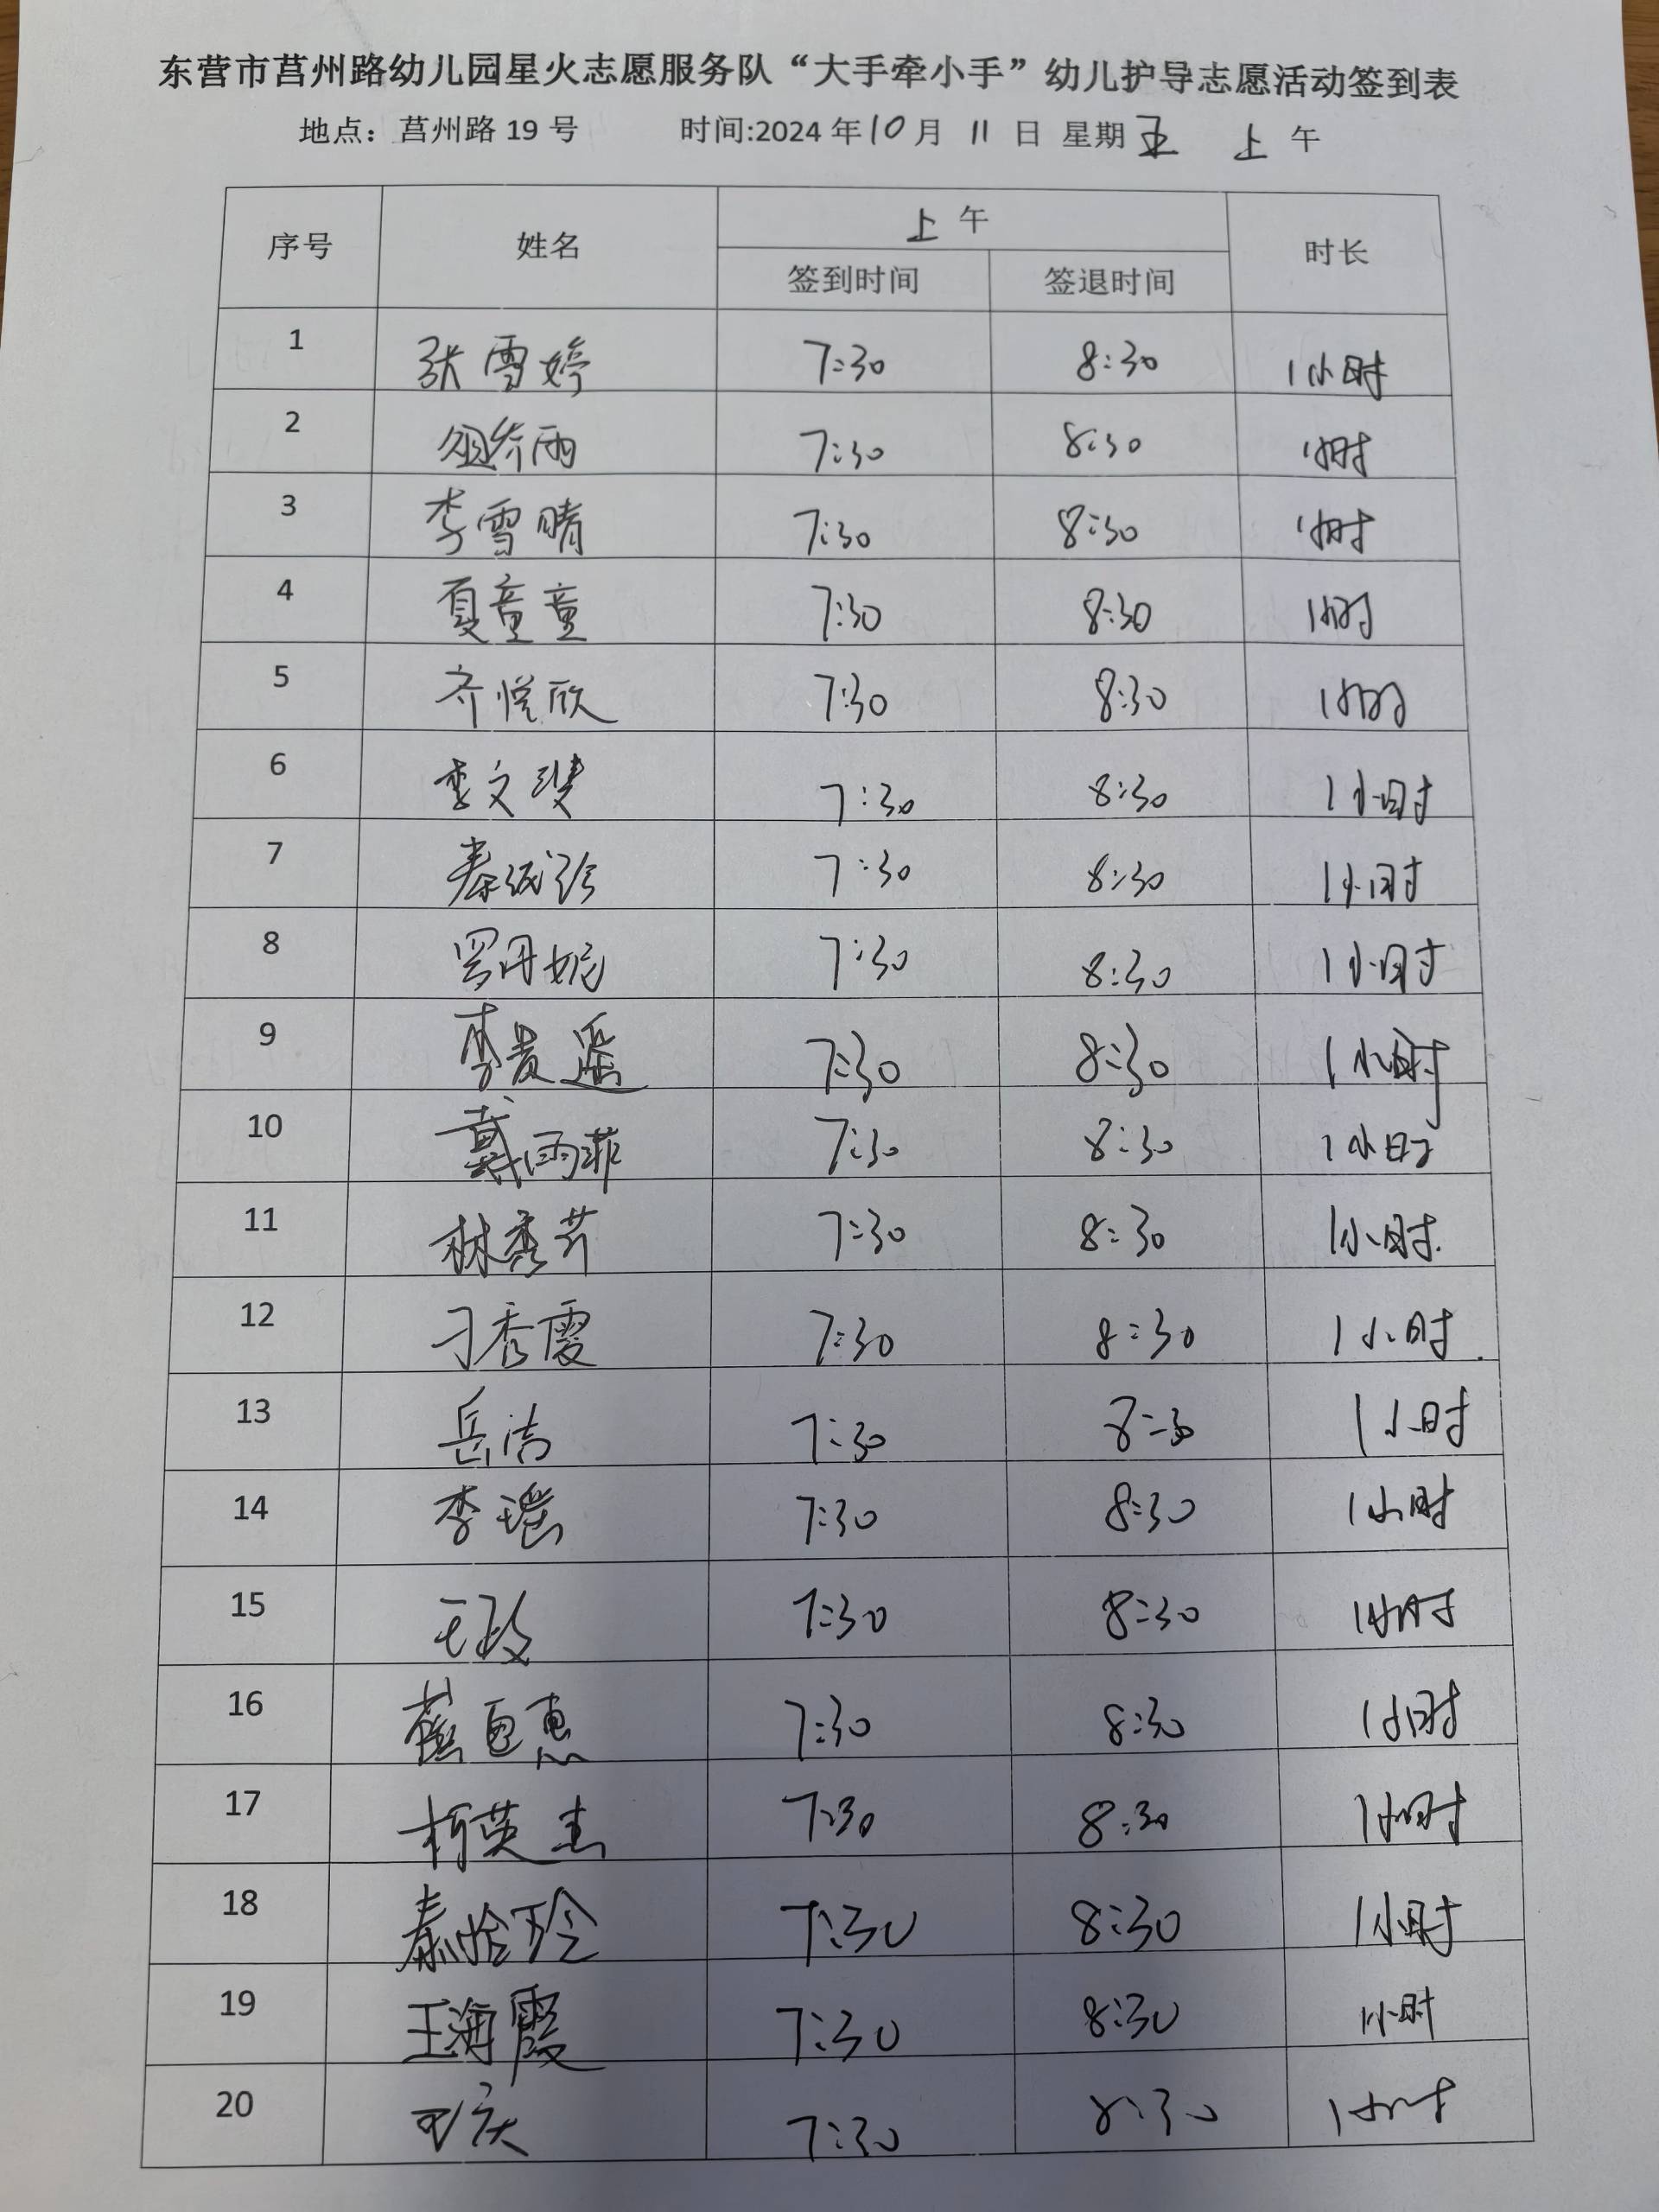 东营市莒州路幼儿园星火志愿服务队“大手牵小手”幼儿护导志愿活动签到表
地点：莒州路 19 号 时间:2024 年 10 月 11 日 星期 五 上 午
序号 姓名 上 午 时长
签到时间 签退时间
1 张雪婷 7:30 8:30 1小时
2 7:30 8:30 1小时
3 李雪晴 7:30 8:30 1小时
4 夏童童 7:30 8:30 1小时
5 齐悦欣 7:30 8:30 1小时
6 李文 7:30 8:30 1小时
7 秦 7:30 8:30 1小时
8 罗丹妮 7:30 8:30 1小时
9 李贵遥 7:30 8:30 1小时
10 戴雨菲 7:30 8:30 1小时
11 林秀芹 7:30 8:30 1小时.
12 刁秀霞 7:30 8:30 1小时.
13 岳洁 7:30 8:30 1小时
14 李瑶 7:30 8:30 1小时
15 王玫 7:30 8:30 1小时
16 7:30 8:30 1小时
17 柯英杰 7:30 8:30 1小时
18 秦怡玲 7:30 8:30 1小时
19 王海霞 7:30 8:30 1小时
20 7:30 8:30 1小时